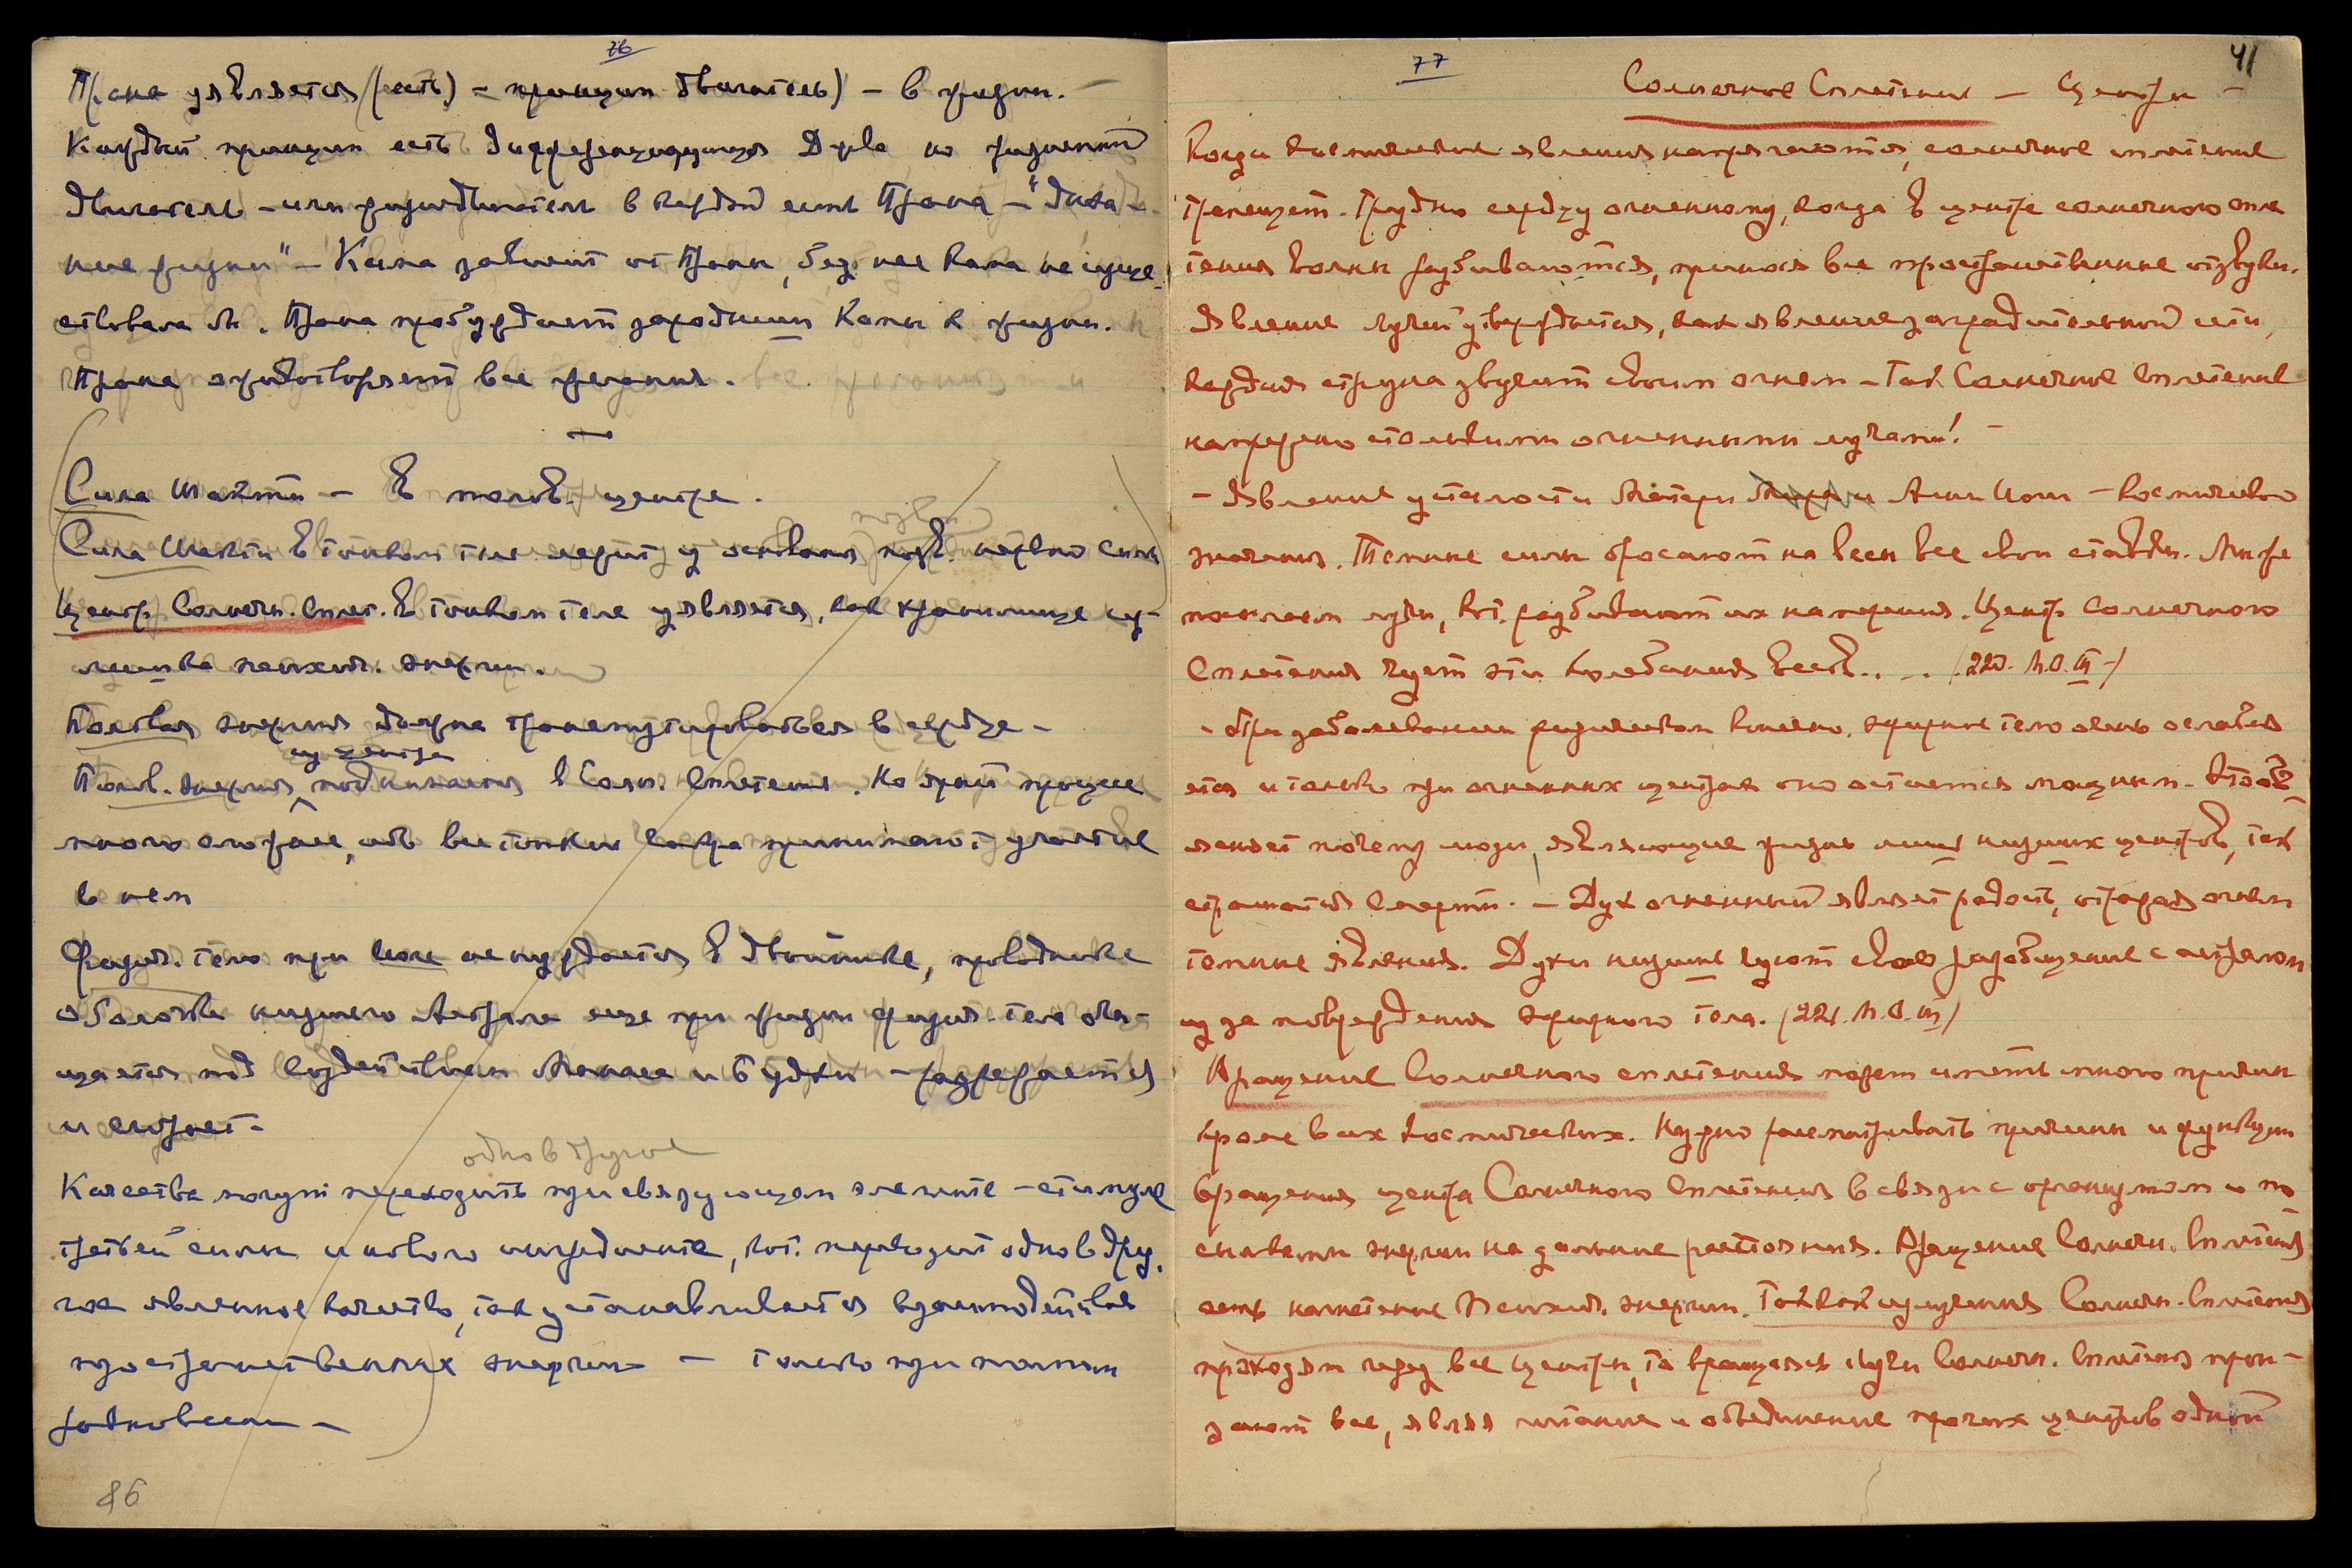 76
Прана уявляется (есть) – принцип двигатель) – в жизни. –
Каждый принцип есть дифференцирующая Дува но жизненный
двигатель – или жизнедвигатель в каждом есть Прана – "дыха-
ние жизни" – Кама зависит от Праны, без нее Кама не суще-
ствовала бы. Прана пробуждает зародыши Камы к жизни.
Прана животворяет все желания.
Сила Шакти – в полов. центре.
Сила Шакти в тонком теле лежит у основания позв. нервно
Центр. Солнечн. Сплет. в тонком теле уявляется, как хранилище су-
психич. энергии.
Половая энергия должна трансмутироваться в сердце –
из центра
Полов. энергия поднимается в Солн. Сплетение. Но этот процесс
много сложнее, ибо все тонкие тела принимают участие
в нем
Физич. тело при не нуждается в двойнике, проводнике
оболочка низшего Астрала еще при жизни физич. тела очи-
щается под воздействием Манаса и Будхи – разрежается
и сгорает –
одно в другое
Качества могут переходить при связующем элементе – стимуле
третьей силы и нового ингредиента, кот. переводит одно в дру-
гое явленное качество, так устанавливается взаимодействие
пространственных энергий – только при полном
равновесии –
86
77
41
Солнечное Сплетение – Центры –
Когда космические явления напрягаются, солнечное сплетение
трепещет. Трудно сердцу огненному, когда в центре солнечного спле
тения волны разбиваются, принося все пространственные отзвуки.
Явление лучей утверждается, как явление заградительной сети,
каждая струна звучит своим огнем – Так Солнечное Сплетение
напряжено столькими огненными лучами! –
– Явление усталости Матери Агни Йоги – космического
значения. Темные силы бросают на весы все свои ставки. Мы же
посылаем лучи, кот. разбивают их напряжения. Центр Солнечного
Сплетения чует эти колебания весов. . – . (220. М.О. III –)
– При заболевании физическом конечно, эфирное тело очень ослабля
ется и только при огненных центрах оно остается мощным. Это объ
ясняет почему люди, являющие жизнь лишь низших центров, так
страшатся смерти. – Дух огненный являет радость, отражая огнем
темные явления. Духи низшие чуют свое разобщение с астралом
из за повреждения эфирного тела. (221. М.О. III)
Вращение Солнечного сплетения может иметь много причин
кроме всех космических. Нужно рассматривать причины и функции
вращения центра Солнечного Сплетения в связи с организмом и по
сылками энергии на дальние расстояния. Вращение Солнечн. Сплетения
есть нагнетение Психич. энергии. Так как излучения Солнечн. Сплетения
проходят через все центры, то вращаясь лучи Солнечн. Сплетения прон –
зают все, являя питание и объединение прочих центров одной